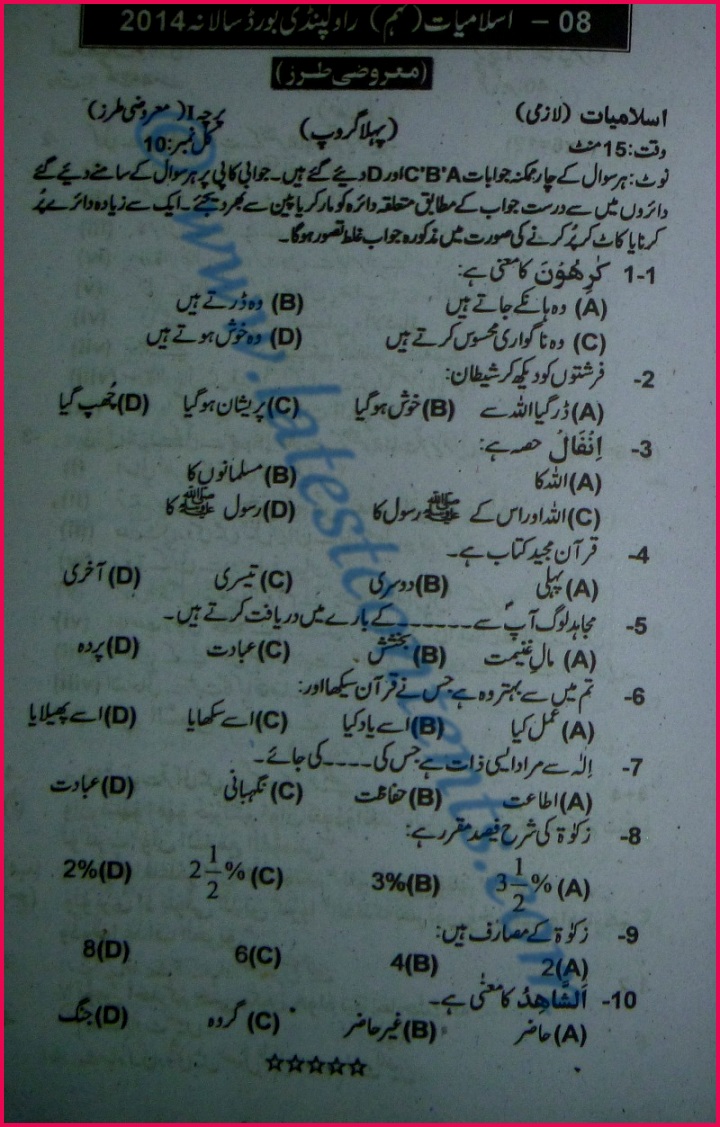 08 - اسلامیات (نہم) راولپنڈی بورڈ سالانہ 2014
(معروضی طرز)
اسلامیات (لازمی) (پہلا گروپ) پرچہ I (معروضی طرز)
وقت: 15 منٹ کل نمبر: 10
نوٹ: ہر سوال کے چار ممکنہ جوابات A'B'C اور D دیئے گئے ہیں۔ جوابی کاپی پر ہر سوال کے سامنے دیئے گئے
دائروں میں سے درست جواب کے مطابق متعلقہ دائرہ کو مارکر یا پین سے بھر دیجئے۔ ایک سے زیادہ دائرے پُر
کرنے یا کاٹ کر پُر کرنے کی صورت میں مذکورہ جواب غلط تصور ہوگا۔
1-1 كٰرِهُوْنَ کا معنی ہے:
(A) وہ ہانکے جاتے ہیں (B) وہ ڈرتے ہیں
(C) وہ ناگواری محسوس کرتے ہیں (D) وہ خوش ہوتے ہیں
2- فرشتوں کو دیکھ کر شیطان:
(A) ڈر گیا اللہ سے (B) خوش ہوگیا (C) پریشان ہوگیا (D) چُھپ گیا
3- اِنْفَالُ حصہ ہے:
(A) اللہ کا (B) مسلمانوں کا
(C) اللہ اور اس کے رسول ﷺ کا (D) رسول ﷺ کا
4- قرآن مجید کتاب ہے۔
(A) پہلی (B) دوسری (C) تیسری (D) آخری
5- مجاہد لوگ آپؐ سے ------ کے بارے میں دریافت کرتے ہیں۔
(A) مالِ غنیمت (B) بخشش (C) عبادت (D) پردہ
6- تم میں سے بہتر وہ ہے جس نے قرآن سیکھا اور:
(A) عمل کیا (B) اسے یاد کیا (C) اسے سکھایا (D) اسے پھیلایا
7- اِلٰہ سے مراد ایسی ذات ہے جس کی ---- کی جائے۔
(A) اطاعت (B) حفاظت (C) نگہبانی (D) عبادت
8- زکوٰۃ کی شرح فیصد مقرر ہے:
(A) 3 1/2 % (B) 3% (C) 2 1/2 % (D) 2%
9- زکوٰۃ کے مصارف ہیں:
(A) 2 (B) 4 (C) 6 (D) 8
10- اَلشَّاهِدُ کا معنٰی ہے۔
(A) حاضر (B) غیر حاضر (C) گروہ (D) جنگ
☆☆☆☆☆